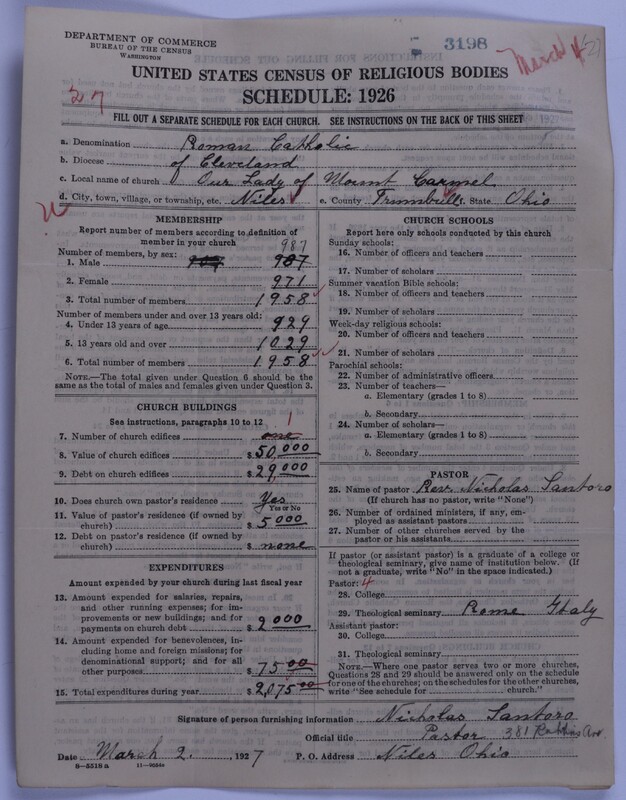 DEPARTMENT OF COMMERCE
BUREAU OF THE CENSUS
WASHINGTON
3198
March 4 '27
UNITED STATES CENSUS OF RELIGIOUS BODIES
SCHEDULE: 1926
27
FILL OUT A SEPARATE SCHEDULE FOR EACH CHURCH. SEE INSTRUCTIONS ON THE BACK OF THIS SHEET
a. Denomination Roman Catholic
b. Diocese of Cleveland
c. Local name of church Our Lady of Mount Carmel
d. City, town, village, or township, etc. Niles e. County Trumbull State Ohio
MEMBERSHIP
Report number of members according to definition of
member in your church
987
Number of members, by sex:
1. Male 987
2. Female 971
3. Total number of members 1958
Number of members under and over 13 years old:
4. Under 13 years of age 929
5. 13 years old and over 1029
6. Total number of members 1958
NOTE.—The total given under Question 6 should be
the same as the total of males and females given under Question 3.
CHURCH BUILDINGS
See instructions, paragraphs 10 to 12
1
7. Number of church edifices one
8. Value of church edifices $50,000
9. Debt on church edifices $29,000
10. Does church own pastor's residence? Yes
Yes or No
11. Value of pastor's residence (if owned by
church) $5000
12. Debt on pastor's residence (if owned by
church) $none
EXPENDITURES
Amount expended by your church during last fiscal year
13. Amount expended for salaries, repairs,
and other running expenses; for im-
provements or new buildings; and for
payments on church debt $2000
14. Amount expended for benevolences, in-
cluding home and foreign missions; for
denominational support; and for all
other purposes $75 00
15. Total expenditures during year $2,075 00
CHURCH SCHOOLS
Report here only schools conducted by this church
Sunday schools:
16. Number of officers and teachers
17. Number of scholars
Summer vacation Bible schools:
18. Number of officers and teachers
19. Number of scholars
Week-day religious schools:
20. Number of officers and teachers
21. Number of scholars
Parochial schools:
22. Number of administrative officers
23. Number of teachers—
a. Elementary (grades 1 to 8)
b. Secondary
24. Number of scholars—
a. Elementary (grades 1 to 8)
b. Secondary
PASTOR
25. Name of pastor Rev. Nicholas Santoro
(If church has no pastor, write "None")
26. Number of ordained ministers, if any, em-
ployed as assistant pastors
27. Number of other churches served by the
pastor or his assistants
If pastor (or assistant pastor) is a graduate of a college or
theological seminary, give name of institution below. (If
not a graduate, write "No" in the space indicated.)
Pastor: 4
28. College
29. Theological seminary Rome Italy
Assistant pastor:
30. College
31. Theological seminary
NOTE.—Where one pastor serves two or more churches,
Questions 28 and 29 should be answered only on the schedule
for one of the churches; on the schedules for the other churches,
write "See schedule for church."
Signature of person furnishing information Nicholas Santoro
Official title Pastor 381 Robbins Ave
Date March 2, 1927 P. O. Address Niles Ohio
8—5518 a